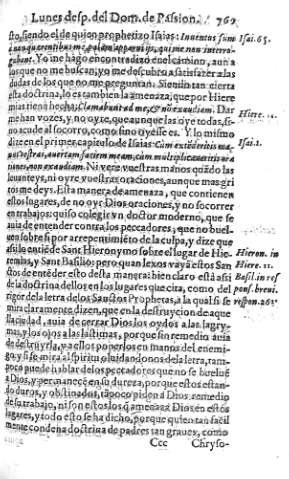 Lunes desp. del Dom. de Passion. 769
sto, siendo el de quien prophetizo Isaias: Inuentus sum Isai. 65.
à non quærentibus me: palam apparui ijs, qui me non interro-
gabant. Yo me hago encontradizo en el camino, aun a
los que no me buscan, yo me descubro a satisfazer a las
dudas de los que no me preguntan. Siendo tan cierta
esta doctrina, lo es tambien la amenaza; que por Hiere
mias tiene hecha; Clamabunt ad me, & non exaudiam. Dar Hiere. 11.
me han vozes, y no oyre, que aunque las oye todas, si-
no acude al socorro, como sino oyesse es. Y lo mismo
dize en el primer capitulo de Isaias: Cum extēderitis ma- Isai. 1.
nus vestras, auertam faciem meam, cùm multiplicaueritis ora
tiones, non exaudiam. Ni vere vuestras manos quādo las
leuanteys, ni oyre vuestras oraciones, aunque mas gri
tos me deys. Esta manera de amenaza, que contienen
estos lugares, de no oyr Dios oraciones, y no socorrer
en trabajos: quiso colegir vn doctor moderno, que se
auia de entender contra los peccadores, que no buel-
uen sobre si por arrepentimiēto de la culpa, y dize que
assi lo entiēde Sant Hieronymo sobre el lugar de Hie- Hieron. in
remias, y Sant Basilio: pero quan lexos vaya estos San Hiere. 11.
ctos de entēder esto desta manera: bien claro està assi Basil. in ref
de la doctrina dellos en los lugares que cita, como del ponf. breui.
rigor de la letra de los Sanctos Prophetas, a la qual si se respon. 261.
mira claramente dizen, que en la destruycion de aque
lla ciudad, auia de cerrar Dios los oydos a las lagry-
mas, y los ojos a las lastimas, porque sin remedio auia
de destruyrla, y a ellos ponerlos en manos del enemi-
go, y si se mira al spiritu oluidandonos de la letra, tam-
poco puede hablar de los peccadores que no se bueluē
a Dios, y permanecē en su dureza, porque estos estan-
do duros, y obstinados, tāpoco piden a Dios remedio
de su trabajo, ni son estos los q̄ amenaza Dios en estos
lugares, y todo esto se ha dicho, porque quien tan facil
mente condena doctrina de padres tan graues, como
Ccc Chryso-